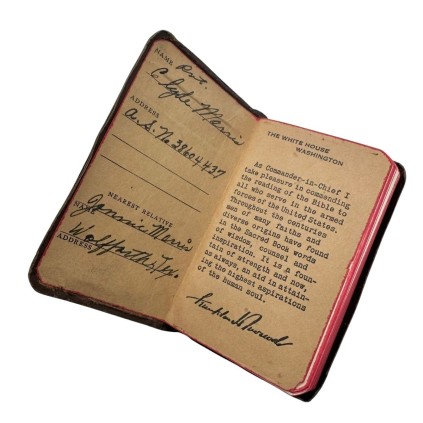 NAME Pvt.
Clyde Merris
ADDRESS
A.S. No 38604437
NEAREST RELATIVE
NAME Jannie Merris
ADDRESS Wolfforth, Tex.
THE WHITE HOUSE
WASHINGTON
As Commander-in-Chief I
take pleasure in commending
the reading of the Bible to
all who serve in the armed
forces of the United States.
Throughout the centuries
men of many faiths and
diverse origins have found
in the Sacred Book words
of wisdom, counsel and
inspiration. It is a foun-
tain of strength and now,
as always, an aid in attain-
ing the highest aspirations
of the human soul.
Franklin D Roosevelt